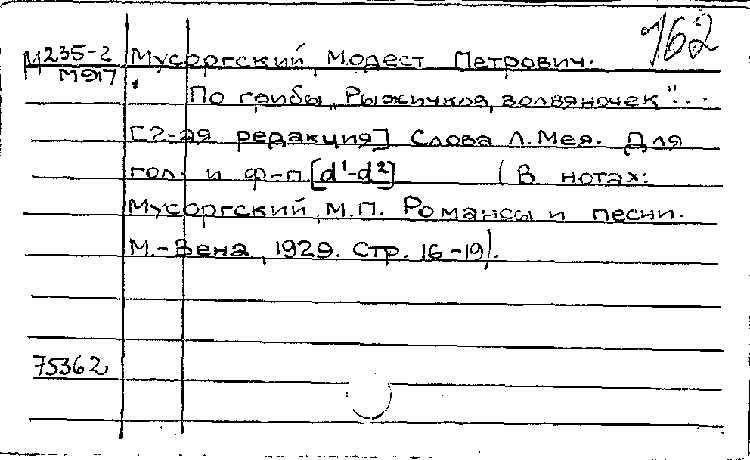 162
М235-2 Мусоргский, Модест Петрович.
М917
По грибы „Рыжичков, волвяночек"...
[2-ая редакция] Слова Л. Мея. Для
гол. и ф-п. [d¹-d²] (В нотах:
Мусоргский, М.П. Романсы и песни.
М.-Вена, 1929. Стр. 16-19).
75362